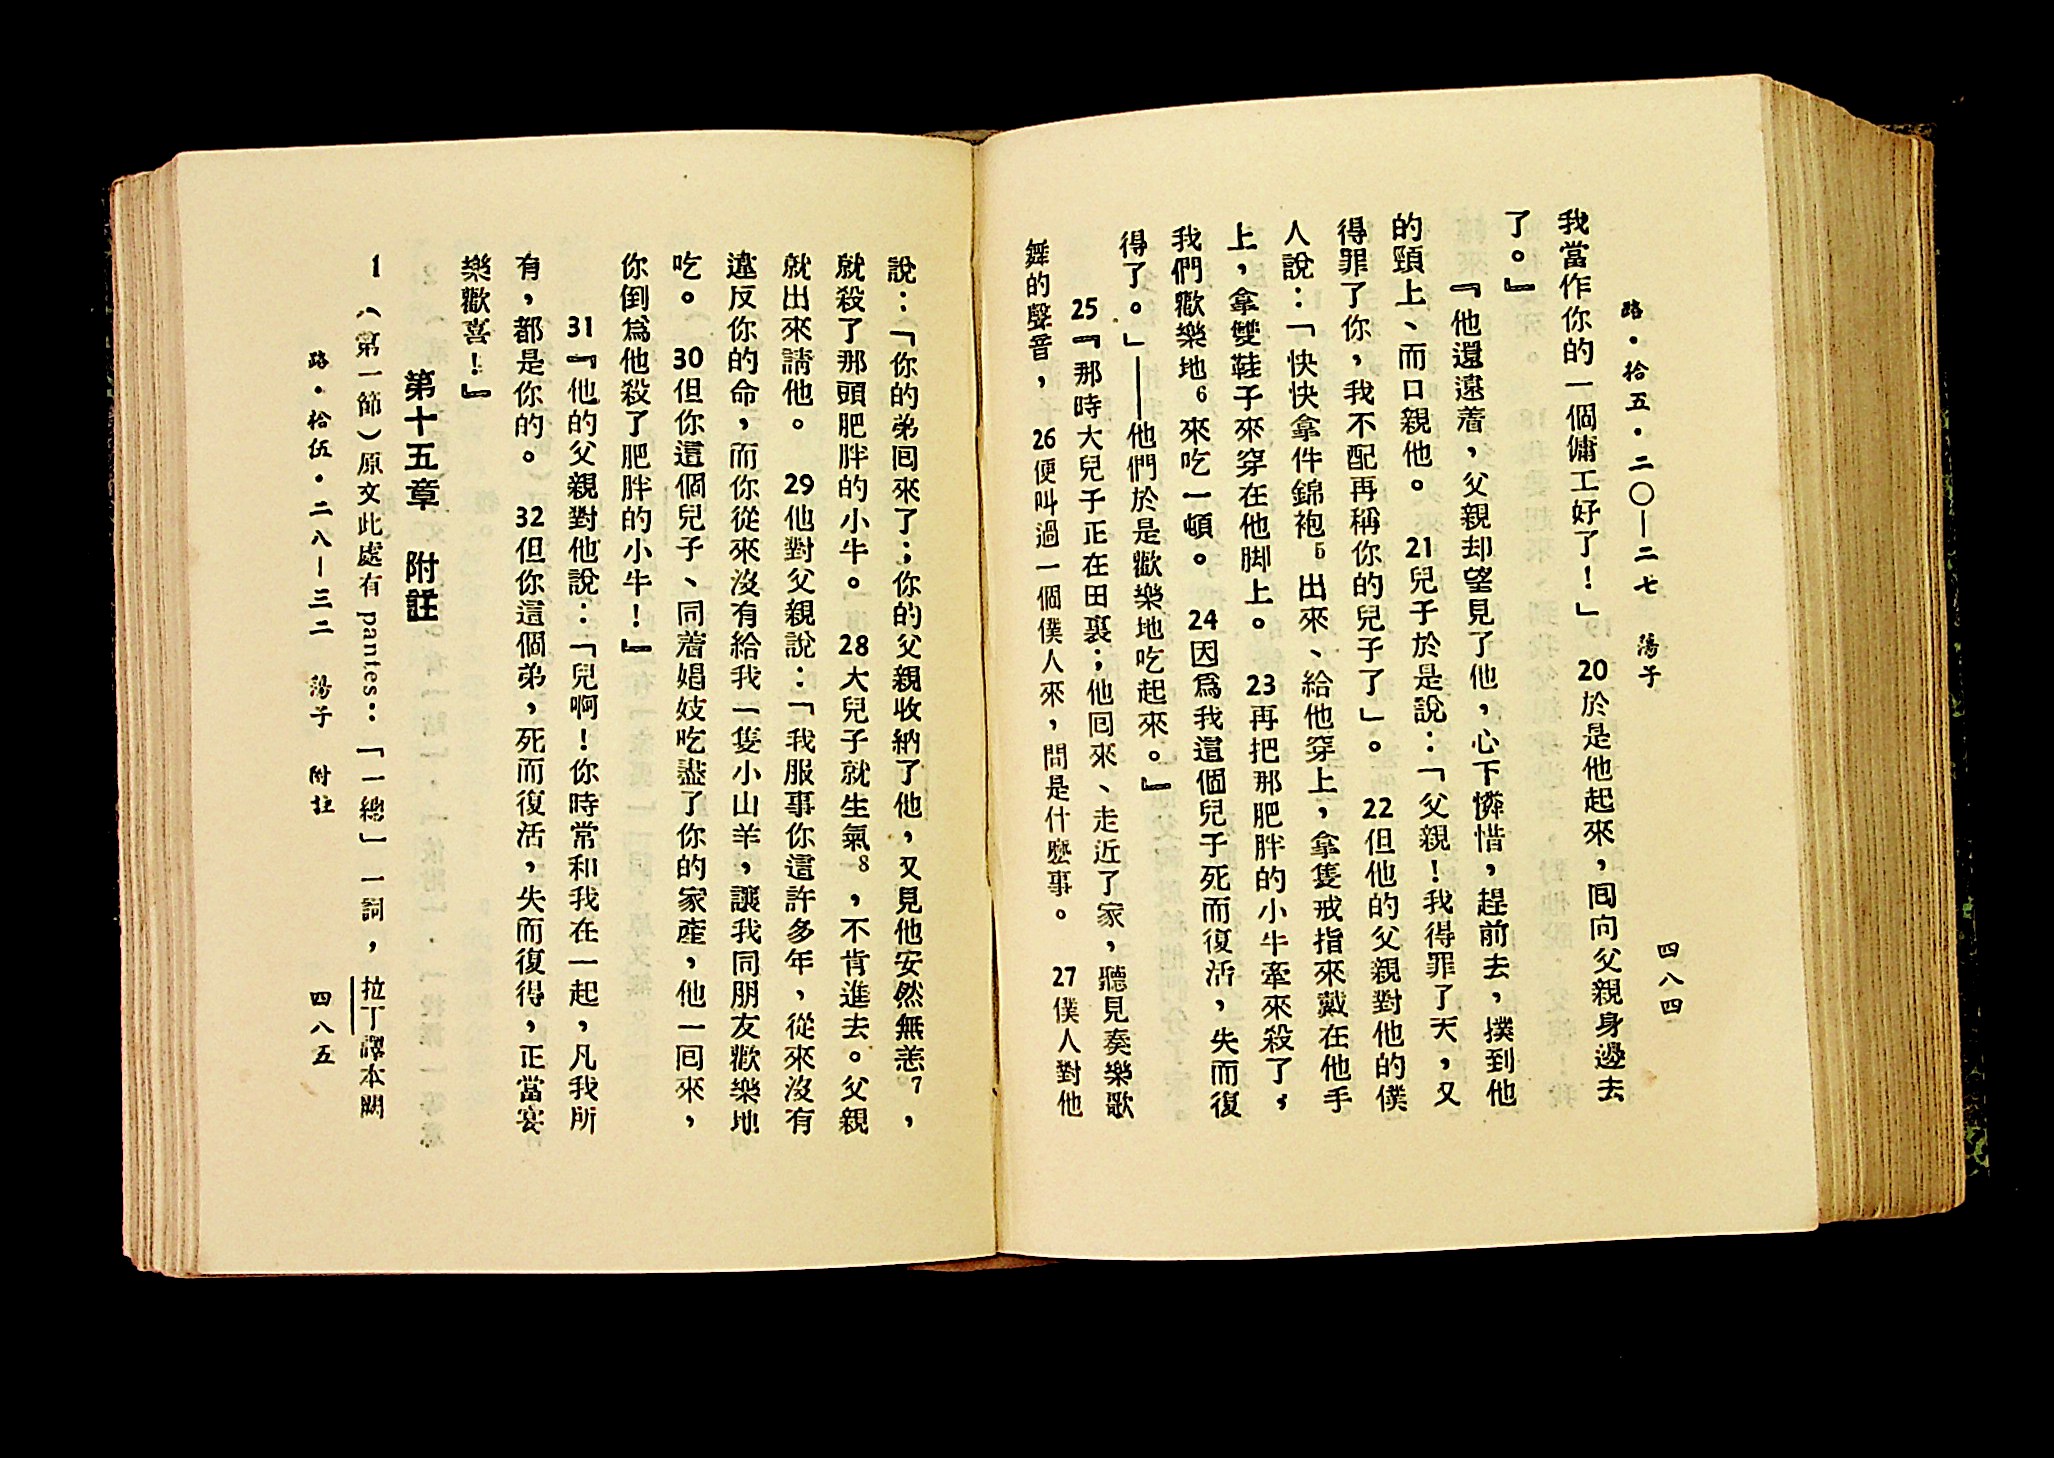 路·拾五·二〇—二七 蕩子 四八四
我當作你的一個傭工好了!」 20於是他起來,囘向父親身邊去
了。』
『他還遠着,父親却望見了他,心下憐惜,趕前去,撲到他
的頸上、而口親他。 21兒子於是說:「父親!我得罪了天,又
得罪了你,我不配再稱你的兒子了」。 22但他的父親對他的僕
人說:「快快拿件錦袍5出來、給他穿上,拿隻戒指來戴在他手
上,拿雙鞋子來穿在他脚上。 23再把那肥胖的小牛牽來殺了,
我們歡樂地6來吃一頓。 24因爲我這個兒子死而復活,失而復
得了。」——他們於是歡樂地吃起來。』
25『那時大兒子正在田裏;他囘來、走近了家,聽見奏樂歌
舞的聲音, 26便叫過一個僕人來,問是什麽事。 27僕人對他
說:「你的弟囘來了;你的父親收納了他,又見他安然無恙7,
就殺了那頭肥胖的小牛。 28大兒子就生氣8,不肯進去。父親
就出來請他。 29他對父親說:「我服事你這許多年,從來沒有
違反你的命,而你從來沒有給我一隻小山羊,讓我同朋友歡樂地
吃。 30但你這個兒子、同着娼妓吃盡了你的家產,他一囘來,
你倒爲他殺了肥胖的小牛!』
31『他的父親對他說:「兒啊!你時常和我在一起,凡我所
有,都是你的。 32但你這個弟,死而復活,失而復得,正當宴
樂歡喜!』
第十五章 附註
1 (第一節)原文此處有 pantes:「一總」一詞,拉丁譯本闕
路·拾伍·二八—三二 蕩子 附註 四八五